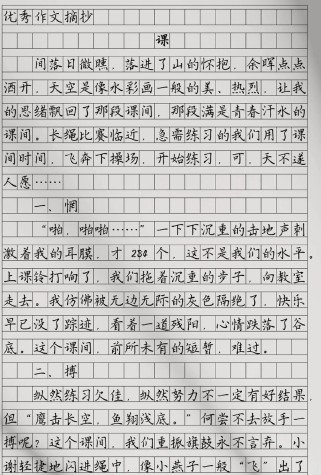 优秀作文摘抄
课
间落日微醺，落进了山的怀抱，余晖点点
洒开，天空是像水彩画一般的美、热烈，让我
的思绪飘回了那段课间，那段满是青春汗水的
课间。长绳比赛临近，急需练习的我们用了课
间时间，飞奔下操场，开始练习，可，天不遂
人愿……
一、惘
“啪，啪啪……”一下下沉重的击地声刺
激着我的耳膜，才234个，这不是我们的水平。
上课铃打响了，我们拖着沉重的步子，向教室
走去。我仿佛被无边无际的灰色隔绝了，快乐
早已没了踪迹，看着一道残阳，心情跌落了谷
底。这个课间，前所未有的短暂，难过。
二、搏
纵然练习欠佳，纵然努力不一定有好结果，
但“鹰击长空，鱼翔浅底。”何尝不去放手一
搏呢？这个课间，我们重振旗鼓永不言弃。小
谢轻捷地闪进绳中，像小燕子一般“飞”出了